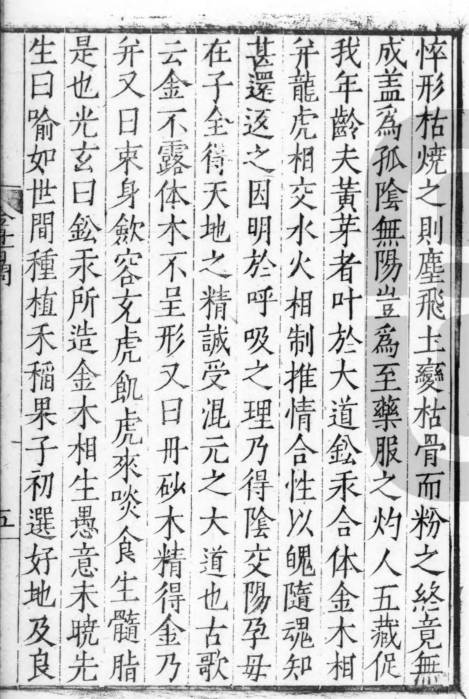 悴形枯燒之則塵飛土變枯骨而粉之終竟無
成盖為孤陰無陽豈為至藥服之灼人五藏促
我年齡夫黃芽者叶於大道鈆汞合体金木相
并龍虎相交水火相制推情合性以魄隨魂知
甚還返之因明於呼吸之理乃得陰交陽孕毋
在子全得天地之精誠受混元之大道也古歌
云金不露体木不呈形又曰丹砂木精得金乃
并又曰束身歛容玄虎飢虎來啖食生髓脂
是也光玄曰鈆汞所造金木相生愚意未曉先
生曰喻如世間種植禾稻果子初選好地及良
五